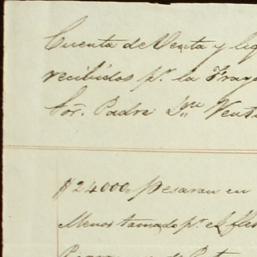 Cuenta de Venta y liq
recibidos pr. la Frag
Sor. Padre Dn. Vent
$24000, pesaran en
Menos tamado pr. el fle